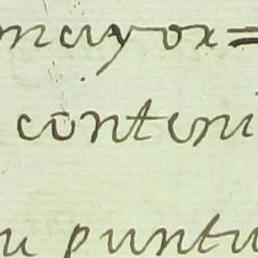 mayor=
conteni
u puntu